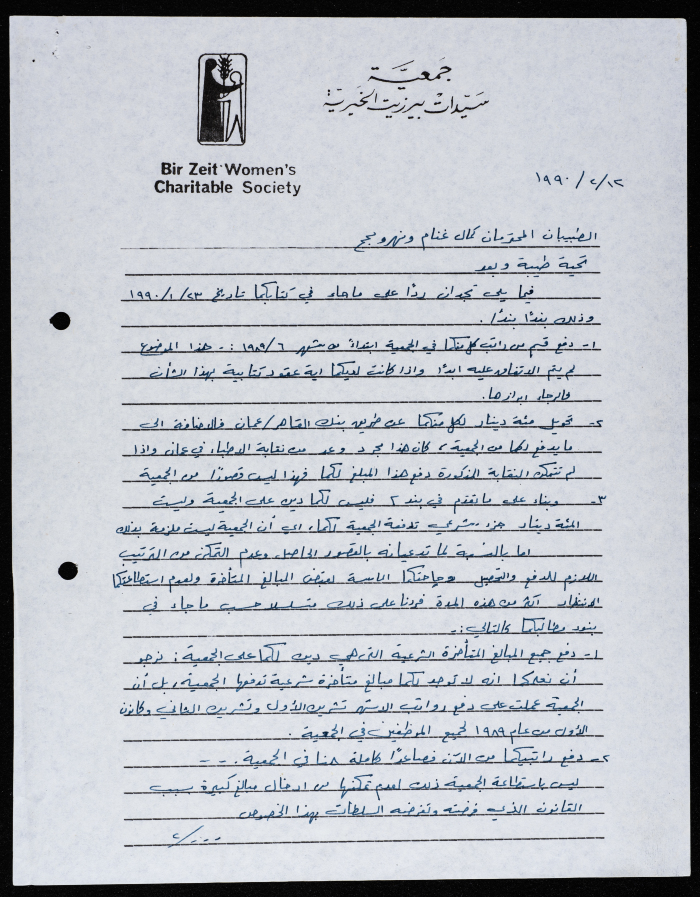 جمعية
سيدات بيرزيت الخيرية
Bir Zeit Women's
Charitable Society
١٩٩٠/٢/١٢
الطبيبان المحترمان كمال غنام ونهرو
تحية طيبة وبعد
فيما يلي تجدان ردًا على ما جاء في كتابكما تاريخ ١٩٩٠/١/٢٣
وذلك بندًا بندًا.
١- دفع قسم من راتب كل منكما في الجمعية ابتداءً من شهر ١٩٨٩/٦ :- هذا الموضوع
لم يتم الاتفاق عليه ابدًا واذا كانت لديكما اية عقود كتابية بهذا الشأن
فالرجاء ابرازها.
٢- تحويل مئة دينار لكل منكما عن طريق بنك القاهرة/عمان فالاضافة الى
ما يدفع لكما من الجمعية، كان هذا مجرد وعد من نقابة الاطباء في عمان واذا
لم تتمكن النقابة المذكورة دفع هذا المبلغ لكما فهذا ليس قصورًا من الجمعية
٣- وبناء على ما تقدم في بند ٢ فليس لكما دين على الجمعية وليست
المئة دينار جزء شرعي تدفعه الجمعية لكما، اي أن الجمعية ليست ملزمة بذلك
اما بالنسبة لما تدعيانه بالقصور الحاصل وعدم التمكن من الترتيب
اللازم للدفع والتحصيل وحاجتكما الماسة لقبض المبالغ المتأخرة ولعدم استطاعتكما
الانتظار اكثر من هذه المدة فردنا على ذلك متسلسلا حسب ما جاء في
بنود مطالبكما كالتالي:-
١- دفع جميع المبالغ المتأخرة الشرعية التي هي دين لكما على الجمعية: نرجو
أن نعلمكما انه لا توجد لكما مبالغ متأخرة شرعية تدفعها الجمعية، بل أن
الجمعية عملت على دفع رواتب الاشهر تشرين الأول وتشرين الثاني وكانون
الأول من عام ١٩٨٩ لجميع الموظفين في الجمعية.
٢- دفع راتبيكما من الآن فصاعدًا كاملة هنا في الجمعية. - -
ليس باستطاعة الجمعية ذلك لعدم تمكنها من ادخال مبالغ كبيرة بسبب
القانون الذي فرضته وتفرضه السلطات بهذا الخصوص
٢/....